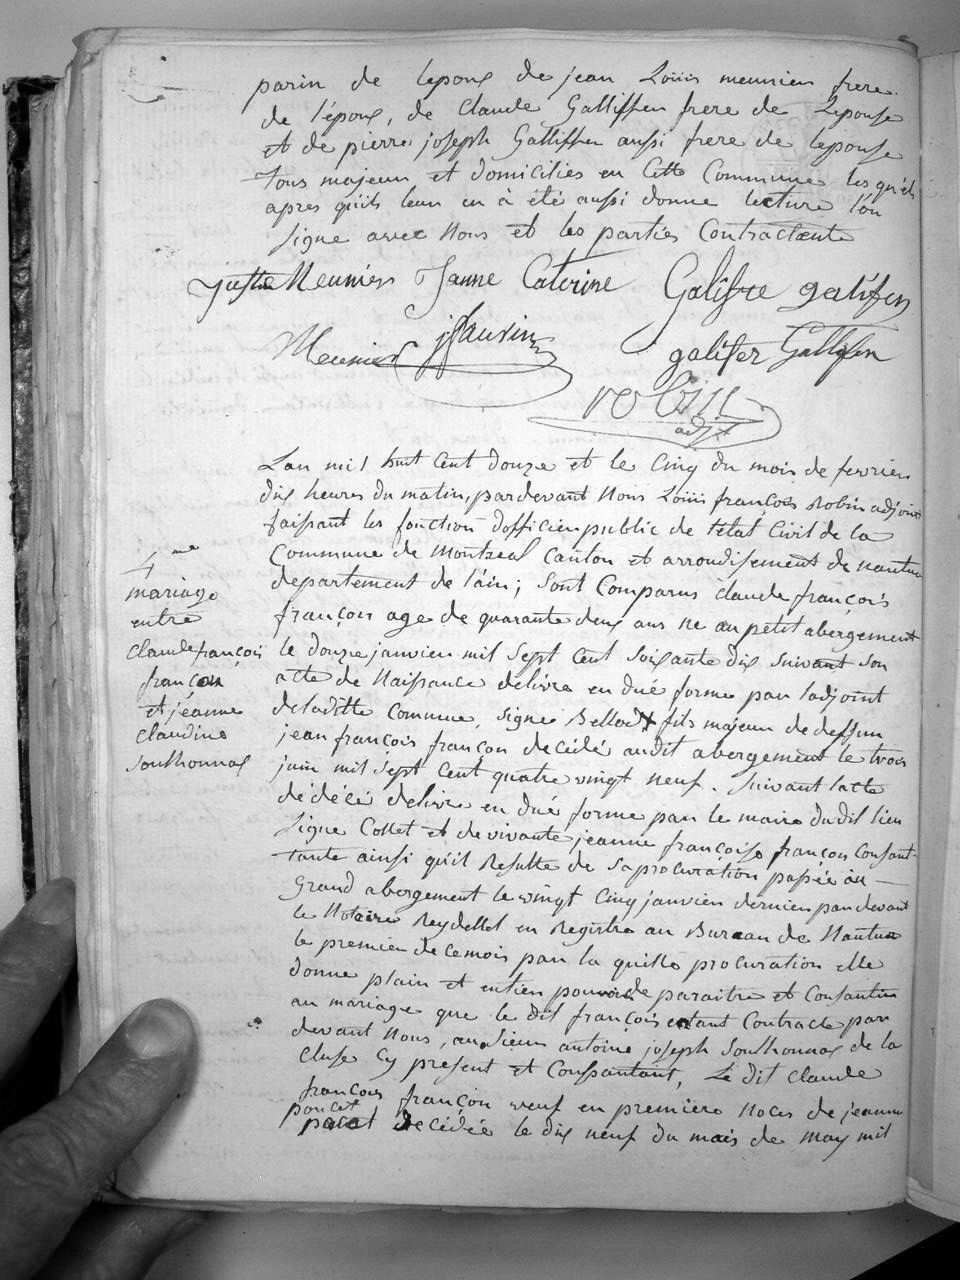 parin de lepoux de jean Loüis meunier frere
de l'époux, de Claude Galliffer frere de Lepouse
et de pierre joseph Galliffer aussi frere de lepouse
tous majeur et domiciliés en Cette Commune les quels
apres quils leur en à été aussi donne lecture l'on
signe avec Nous et les parties Contractente
juste Meuniers Janne Caterine Galifre galifer
Meunier galifer Galliffer
robin
adjt
Lan mil huit Cent douze et le Cinq du mois de fevrier
dix heures du matin, pardevant Nous Loüis françois Robin adjoint
faissant les fonction dofficier public de létat Civil de la
Commune de Montreal Canton et arrondissement de nantua
departement de l'ain; sont Comparus claude françois
françois age de quarante deux ans ne au petit abergement
le douze janvier mil sept Cent soixante dix suivant son
acte de Naissance delivre en dué forme par l'adjoint
deladitte Commune, signé Bellod fils majeur de deffun
jean françois françon decédé audit abergement le trois
juin mil sept Cent quatre vingt neuf. suivant lacte
dédécé delivre en dué forme par le maire dudit lieu
signe Collet et de vivante jeanne françoise françon Consant-
tante ainsi qu'il Résulte de saprocuration passée au
Grand abergement le vingt Cinq janvier dernier par devant
le Notaire Reydellet en Registre au Bureau de Nantua
le premier de cemois par la quelle procuration elle
donne plain et entier pouvoir de paraitre et Consantir
au mariage que le dit françois entant Contracte par
devant Nous, au sieur antoine joseph Southonnas de la
Cluse Cy présent et Consantant, Le dit Claude
françois françon veuf en premiere Noces de jeanne
poncet
decédée le dix neuf du mois de may mil
4me
mariage
entre
claude françois
françon
et jeanne
claudine
southonnas